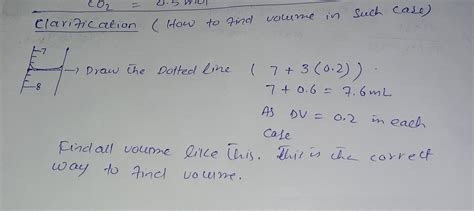 CO2 = 0.5 mol
Clarification ( How to find volume in such case)
7
→ Draw the Dotted line ( 7 + 3 (0.2) ) .
8
7 + 0.6 = 7.6 mL
As DV = 0.2 in each
case
Find all volume like this. This is the correct
way to find volume.